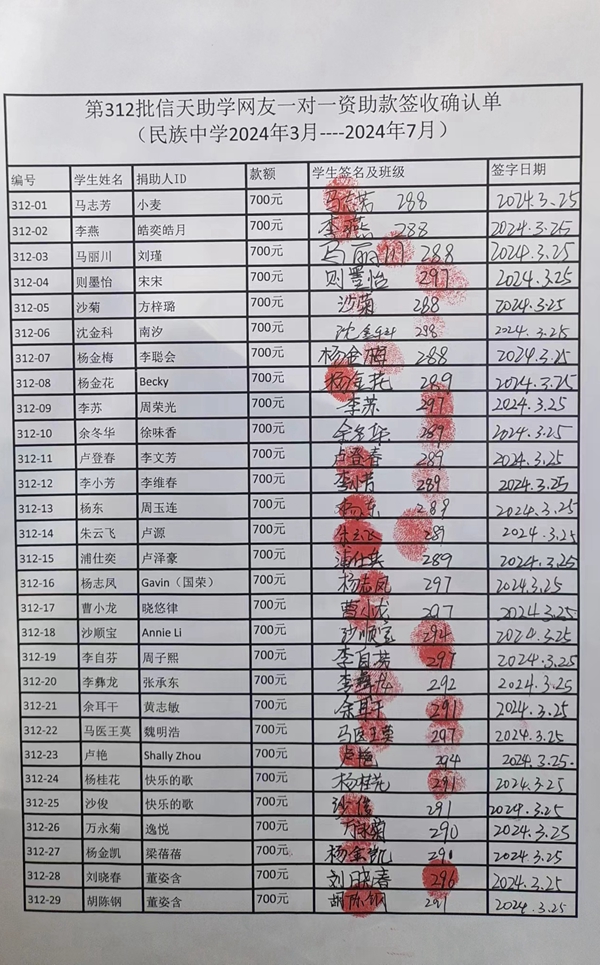 第312批信天助学网友一对一资助款签收确认单
（民族中学2024年3月----2024年7月）
编号 学生姓名 捐助人ID 款额 学生签名及班级 签字日期
312-01 马志芳 小麦 700元 马志芳 288 2024.3.25
312-02 李燕 皓奕皓月 700元 李燕 288 2024.3.25
312-03 马丽川 刘瑾 700元 马丽川 288 2024.3.25
312-04 则墨怡 宋宋 700元 则墨怡 297 2024.3.25
312-05 沙菊 方梓璐 700元 沙菊 288 2024.3.25
312-06 沈金科 南汐 700元 沈金科 288 2024.3.25
312-07 杨金梅 李聪会 700元 杨金梅 288 2024.3.25
312-08 杨金花 Becky 700元 杨金花 289 2024.3.25
312-09 李苏 周荣光 700元 李苏 297 2024.3.25
312-10 余冬华 徐味香 700元 余冬华 289 2024.3.25
312-11 卢登春 李文芳 700元 卢登春 289 2024.3.25
312-12 李小芳 李维春 700元 李小芳 289 2024.3.25
312-13 杨东 周玉连 700元 杨东 288 2024.3.25
312-14 朱云飞 卢源 700元 朱云飞 289 2024.3.25
312-15 浦仕奕 卢泽豪 700元 浦仕奕 289 2024.3.25
312-16 杨志凤 Gavin（国荣） 700元 杨志凤 297 2024.3.25
312-17 曹小龙 晓悠律 700元 曹小龙 297 2024.3.25
312-18 沙顺宝 Annie Li 700元 沙顺宝 294 2024.3.25
312-19 李自芬 周子熙 700元 李自芬 297 2024.3.25
312-20 李彝龙 张承东 700元 李彝龙 292 2024.3.25
312-21 余耳干 黄志敏 700元 余耳干 291 2024.3.25
312-22 马医王莫 魏明浩 700元 马医王莫 297 2024.3.25
312-23 卢艳 Shally Zhou 700元 卢艳 294 2024.3.25.
312-24 杨桂花 快乐的歌 700元 杨桂花 291 2024.3.25
312-25 沙俊 快乐的歌 700元 沙俊 291 2024.3.25
312-26 万永菊 逸悦 700元 万永菊 290 2024.3.25
312-27 杨金凯 梁蓓蓓 700元 杨金凯 290 2024.3.25
312-28 刘晓春 董姿含 700元 刘晓春 296 2024.3.25
312-29 胡陈钢 董姿含 700元 胡陈钢 291 2024.3.25